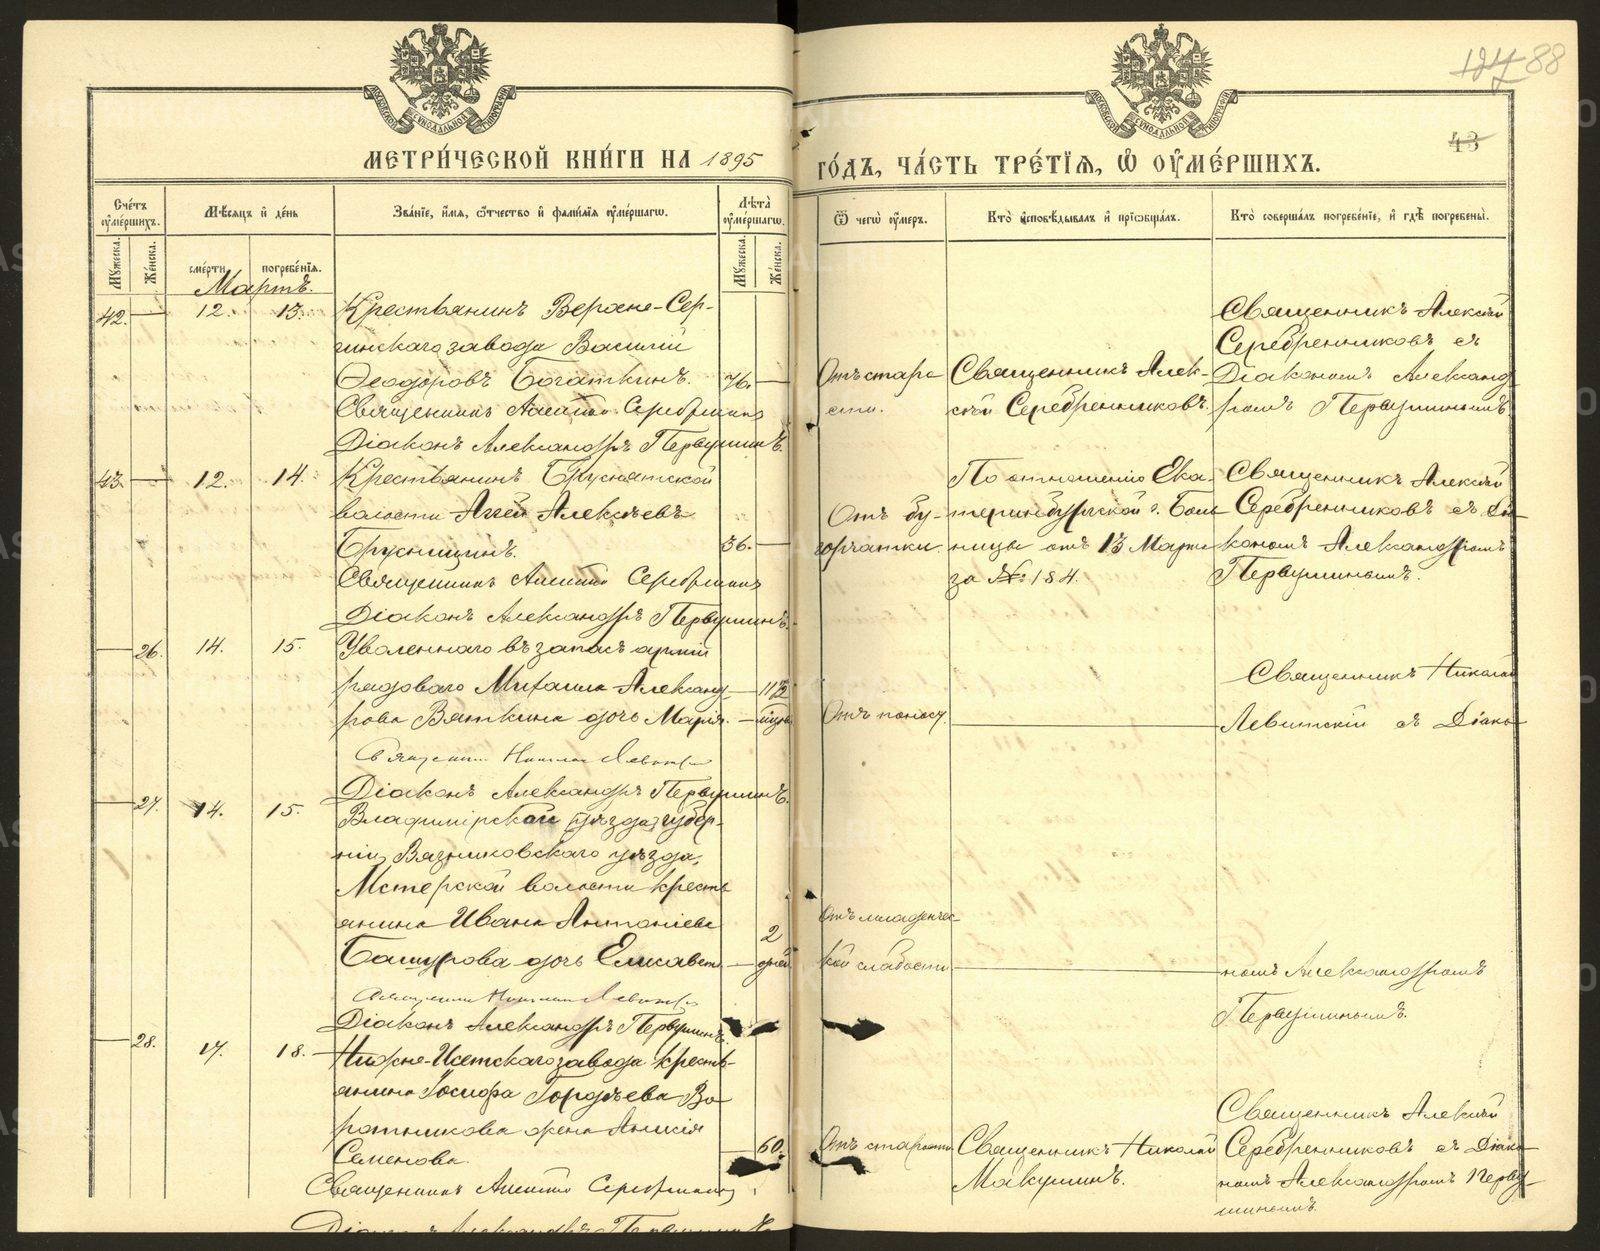 МЕТРИ́ЧЕСКОЙ КНИ́ГИ НА 1895
ГО́ДЪ, ЧА́СТЬ ТРЕ́ТЇЯ, Ѡ҆ ОУ҆МЕ́РШИХЪ.
88
43
Сче́тъ оу҆ме́ршихъ.
Мѣ́сяцъ и҆ де́нь
Зва́нїе, и҆́мя, ѻ҆́тчество и҆ фами́лїя оу҆ме́ршагѡ.
Лѣ́та оу҆ме́ршагѡ.
Ѿ чегѡ̀ оу҆́меръ.
Кто̀ и҆сповѣ́дывалъ и҆ прїѡбща́лъ.
Кто̀ соверша́лъ погребе́нїе, и҆ гдѣ̀ погребены̀.
Му́жеска. Же́нска.
сме́рти. погребе́нїя.
Му́жеска. Же́нска.
Мартъ.
42. 12. 13.
Крестьянинъ Верхне-Сер-
гинскаго завода Василій
Ѳеодоровъ Богаткинъ. 76.
Священникъ Алексій Серебренниковъ
Діаконъ Александръ Первушинъ.
Отъ старо-
сти.
Священникъ Алек-
сѣй Серебренниковъ.
Священникъ Алексѣй
Серебренниковъ съ
Діакономъ Александ-
ромъ Первушинымъ.
43. 12. 14.
Крестьянинъ Бруснятской
волости Аггей Алексѣевъ
Брусницинъ. 36.
Священникъ Алексій Серебренниковъ
Діаконъ Александръ Первушинъ.
Отъ бу-
горчатки.
По отношенію Ека-
теринбургской г. Боль-
ницы отъ 13 Марта
за № 184.
Священникъ Алексѣй
Серебренниковъ съ Діа-
кономъ Александромъ
Первушинымъ.
26. 14. 15.
Уволеннаго въ запасъ арміи
рядоваго Михаила Александ-
рова Вяткина дочь Марія.
Священникъ Николай Левитскій
Діаконъ Александръ Первушинъ.
Отъ поносу.
Священникъ Николай
Левитскій съ Діако-
27. 14. 15.
Владимірской (уѣзда) губер-
ніи, Вязниковскаго уѣзда,
Мстерской волости кресть-
янина Ивана Антоніева
Башурова дочь Елисавета 2 дней
Священникъ Николай Левитскій
Діаконъ Александръ Первушинъ.
Отъ младенчес-
кой слабости
номъ Александромъ
Первушинымъ.
28. 17. 18.
Нижне-Исетскаго завода кресть-
янина Іосифа Гордѣева Во-
ротникова жена Анисія
Семенова. 60.
Священникъ Алексій Серебренниковъ
Діаконъ Александръ Первушинъ
Отъ старости
Священникъ Николай
Макушинъ.
Священникъ Алексѣй
Серебренниковъ съ Діако-
номъ Александромъ Перву-
шинымъ.